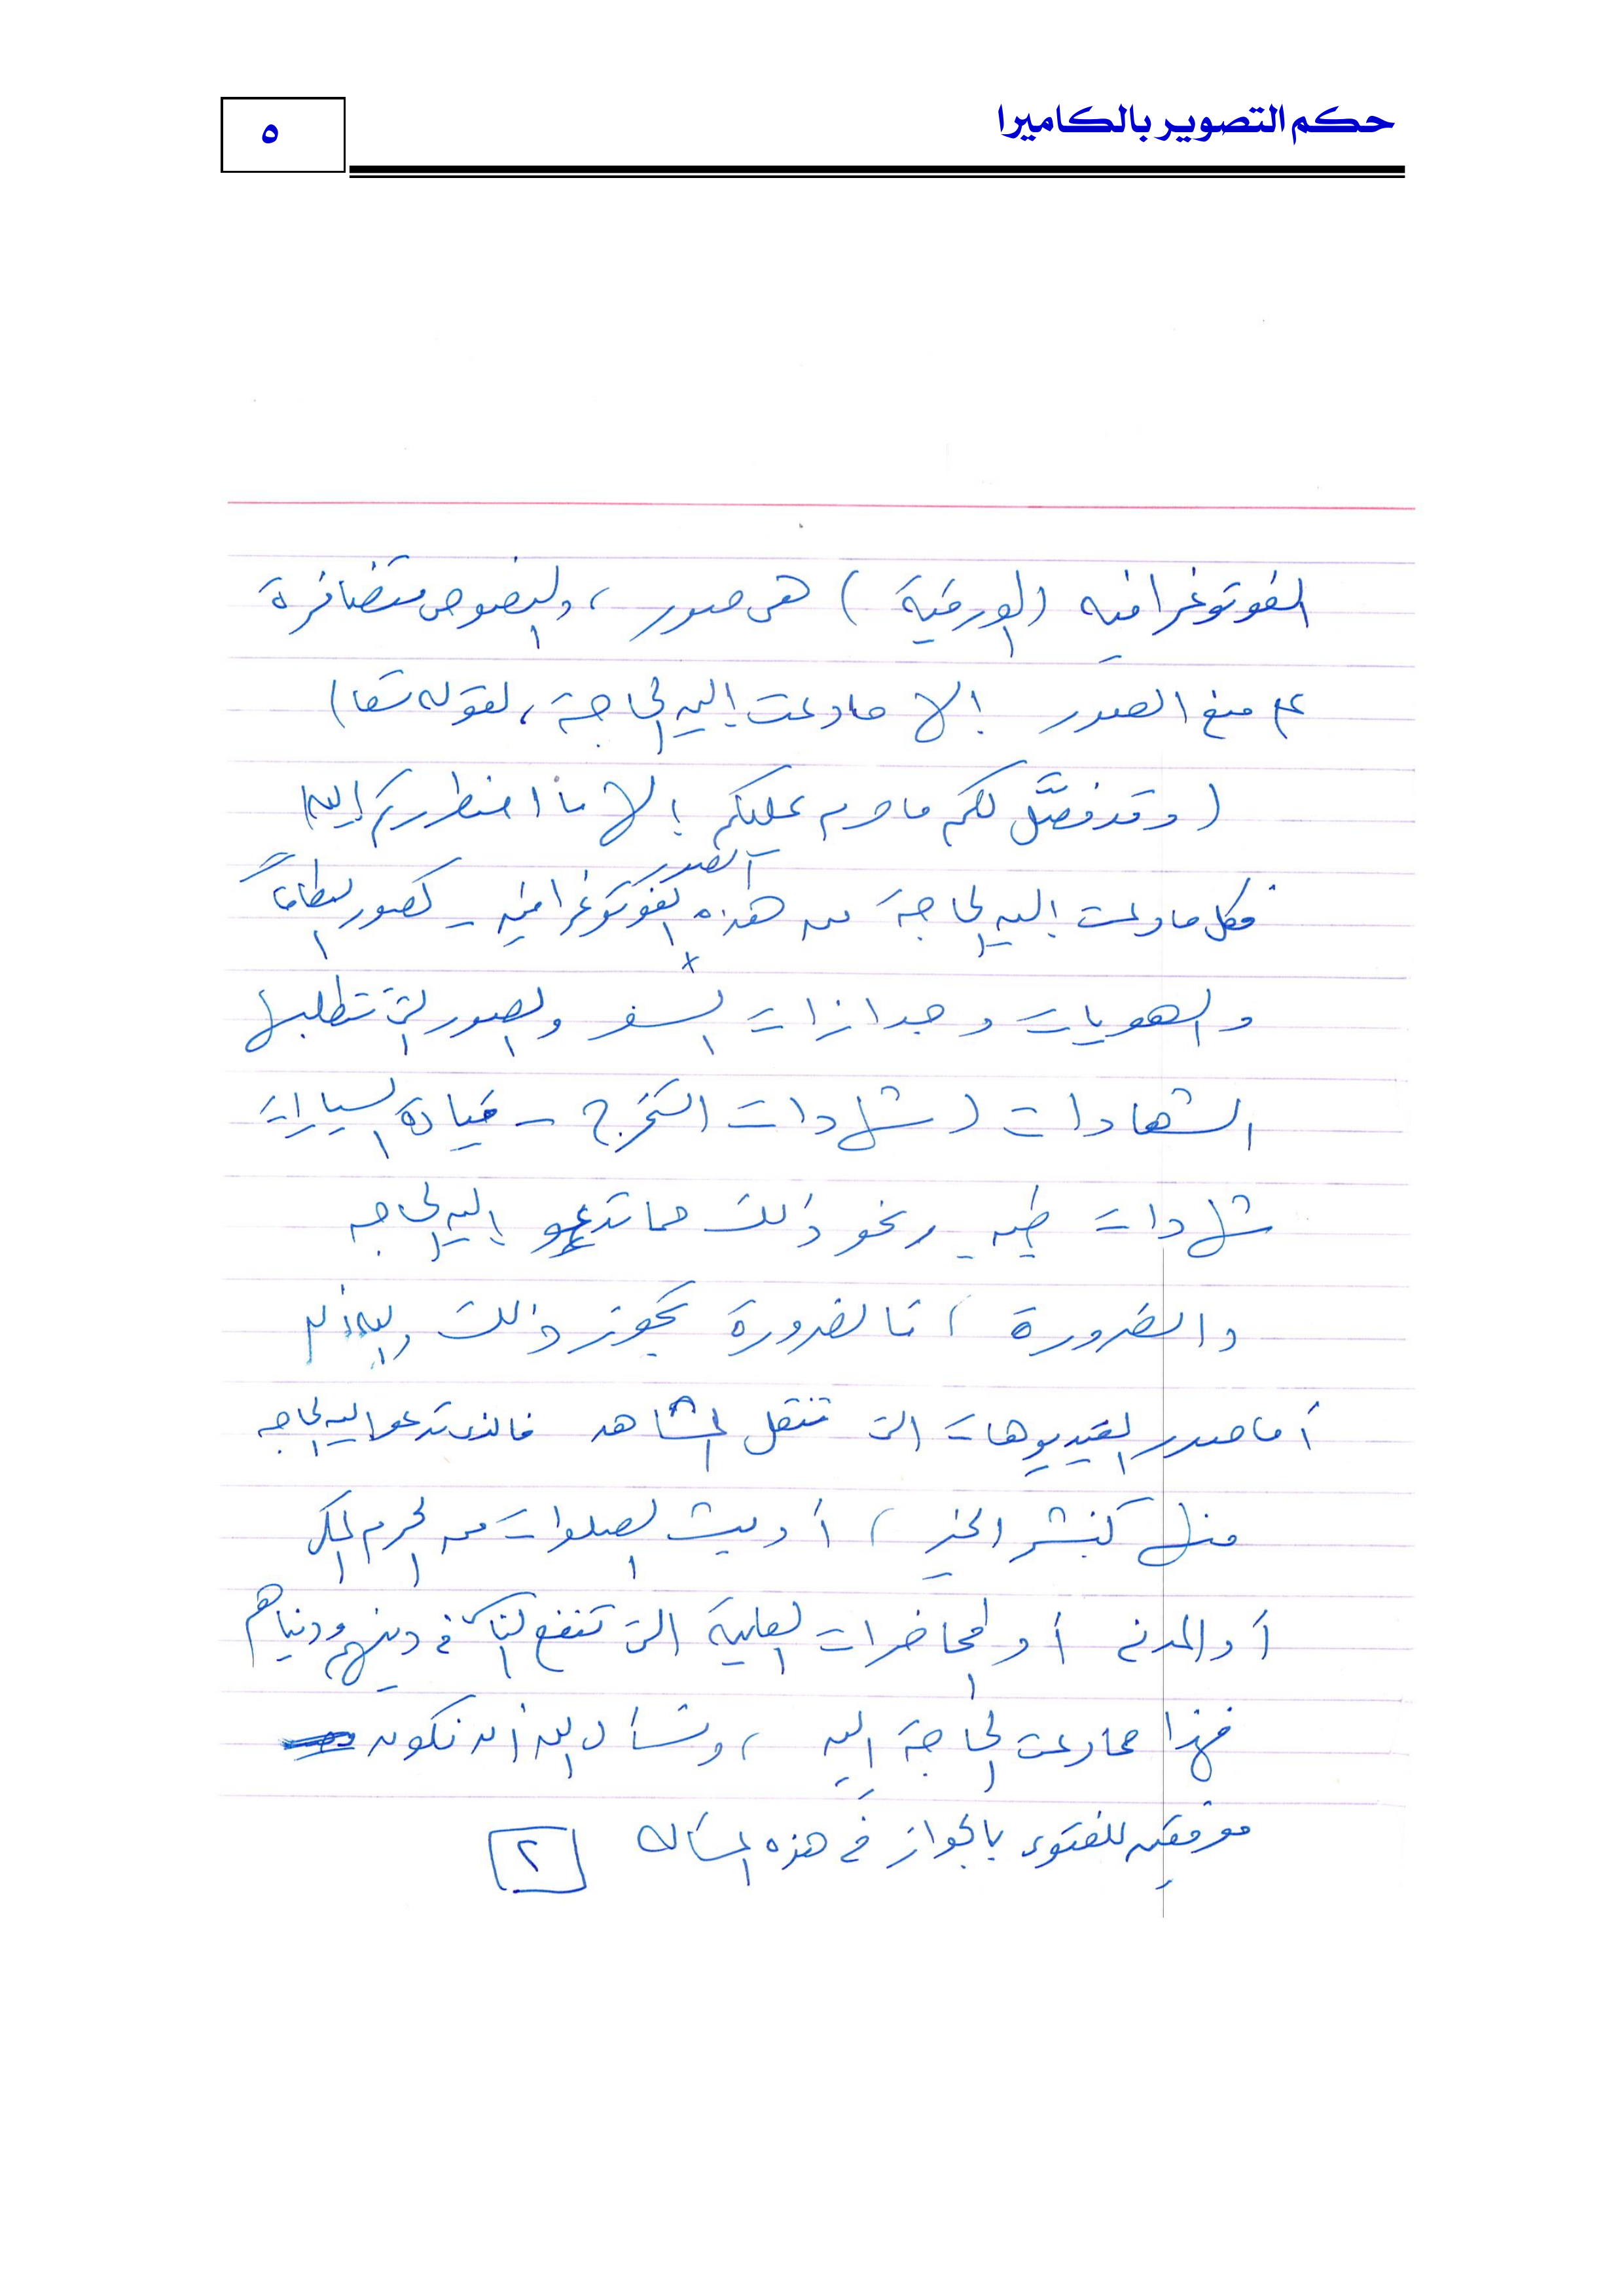 حكم التصوير بالكاميرا
٥
الفوتوغرافيه (الورقية) هى صور، والنصوص متضافرة
على منع الصور إلا ما دعت إليه الحاجة، لقوله تعالى
(وقد فصَّل لكم ما حرم عليكم إلا ما اضطررتم إليه)
فكل ما دعت إليه الحاجة من هذه الصور الفوتوغرافيه - كصور البطاقات
والهويات وجوازات السفر والصور التى تتطلبها
الشهادات (شهادات التخرج - قيادة السيارات
شهادات طبيه ونحو ذلك مما تدعو إليه الحاجه
والضرورة، فالضرورة تجوز ذلك والله أعلم
أما صور الفيديوهات التى تنقل المشاهد فالذى تدعو إليه الحاجه
منها كنشر الخير، أو بث الصلوات من الحرم المكى
أو المدنى أو المحاضرات العلمية التى تنفع الناس فى دينهم ودنياهم
فهذا مما دعت الحاجة إليه، ونسأل الله أن نكون
موفقين للفتوى بالجواز فى هذه المسأله
٢